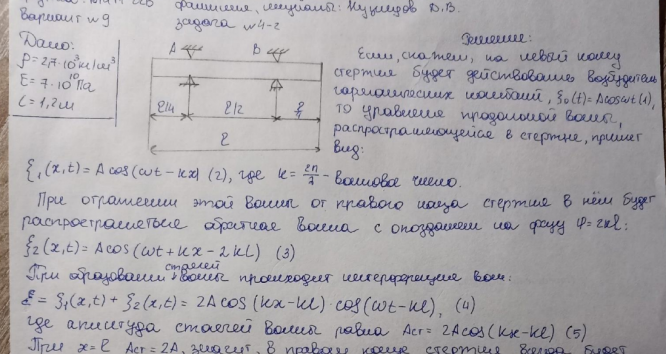 фамилия, инициалы: Кузнецов В.В.
Вариант №9
задача №4-2
Дано:
ρ = 2,7·10³ кг/м³
E = 7·10¹⁰ Па
L = 1,2 м
A
B
ℓ/4
ℓ/2
ℓ
Решение:
Если, скажем, на левый конец
стержня будет действовать возбудитель
гармонических колебаний, ξ₀(t) = Acosωt (1),
то уравнение продольной волны,
распространяющейся в стержне, примет
вид:
ξ₁(x,t) = A cos(ωt - kx) (2), где k = 2π/λ - волновое число.
При отражении этой волны от правого конца стержня в нём будет
распространяться обратная волна с опозданием на фазу φ = 2kl:
ξ₂(x,t) = Acos(ωt + kx - 2kL) (3)
При образовании стоячей волны происходит интерференция волн:
ξ = ξ₁(x,t) + ξ₂(x,t) = 2A cos(kx - kl) · cos(ωt - kl), (4)
где амплитуда стоячей волны равна Aст = 2A cos(kx - kl) (5)
При x = ℓ Aст = 2A, значит, в правом конце стержня всегда будет